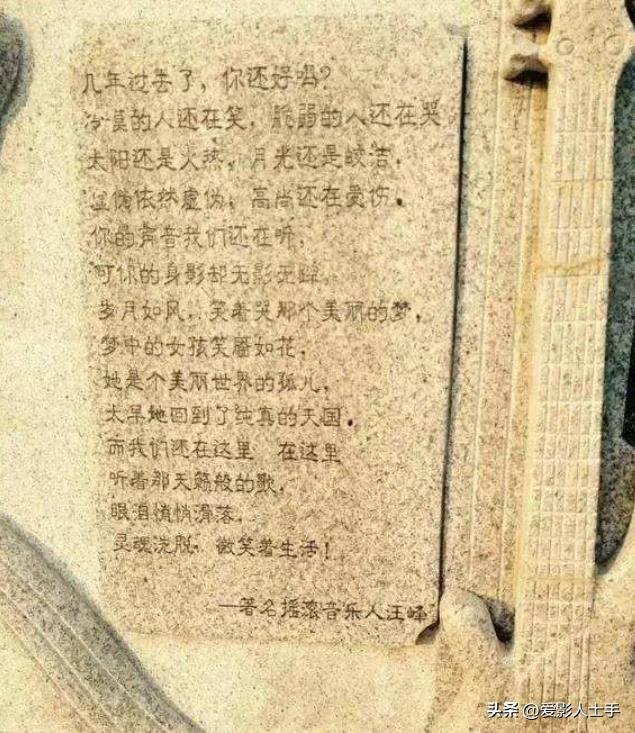 几年过去了，你还好吗？
冷漠的人还在笑，脆弱的人还在哭
太阳还是火热，月光还是皎洁，
虚伪依然虚伪，高尚还在受伤。
你的声音我们还在听，
可你的身影却无影无踪，
岁月如风，笑着哭那个美丽的梦，
梦中的女孩笑靥如花，
她是个美丽世界的孤儿，
太早地回到了纯真的天国。
而我们还在这里 在这里
听着那天籁般的歌，
眼泪悄悄滑落，
灵魂洗脱，微笑着生活！
—著名摇滚音乐人汪峰
头条 @爱影人士手